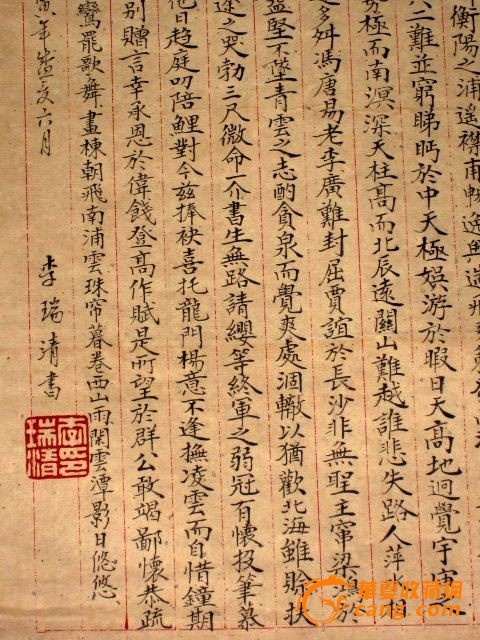 衡陽之浦遙襟甫暢逸興遄飛
二難並窮睇眄於中天極娛游於暇日天高地迥覺宇宙
窮極而南溟深天柱高而北辰遠關山難越誰悲失路人萍水
多舛馮唐易老李廣難封屈賈誼於長沙非無聖主竄梁鴻於
益堅不墜青雲之志酌貪泉而覺爽處涸轍以猶歡北海雖賒扶
途之哭勃三尺微命一介書生無路請纓等終軍之弱冠有懷投筆慕
他日趋庭叨陪鯉對今茲捧袂喜托龍門楊意不逢撫凌雲而自惜鍾期
別贈言幸承恩於偉餞登高作賦是所望於群公敢竭鄙懷恭疏
鸞罷歌舞畫棟朝飛南浦雲珠帘暮卷西山雨閑雲潭影日悠悠
寅年孟夏六月
李瑞清書
李瑞清印
華夏收藏網
cang.com